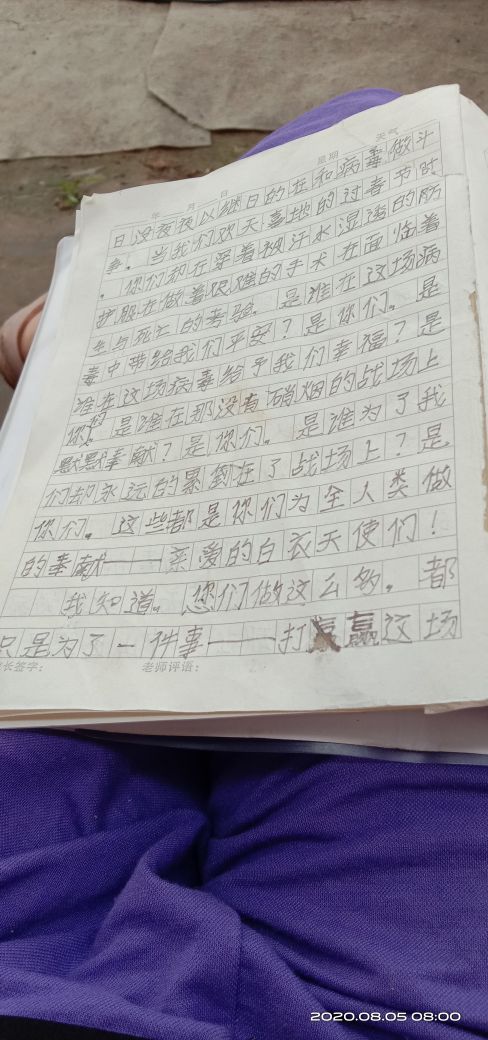 年 月 日 星期 天气
日没夜夜以继日的在和病毒做斗
争。当我们欢天喜地的过春节时
,你们却在穿着被汗水湿透的防
护服在做着艰难的手术在面临着
生与死亡的考验。是谁在这场病
毒中带给我们平安?是你们。是
谁在这场病毒给予我们幸福?是
你们。是谁在那没有硝烟的战场上
默默奉献?是你们。是谁为了我
们却永远的累倒在了战场上?是
你们。这些都是你们为全人类做
的奉献——亲爱的白衣天使们!
我知道。您们做这么多。都
只是为了一件事——打赢这场
长签字: 老师评语:
2020.08.05 08:00